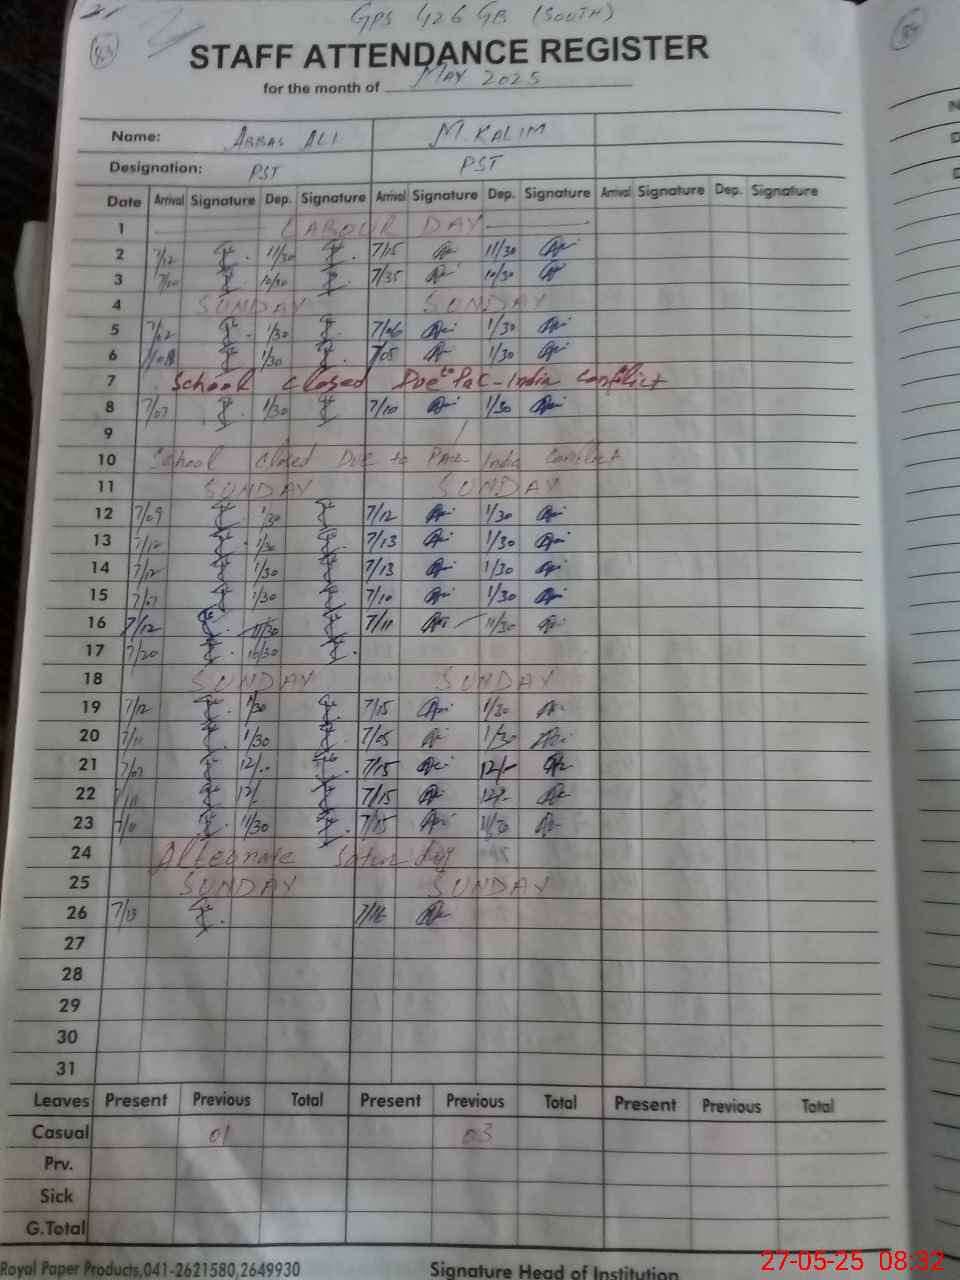 GPS 426 GB (SOUTH)
83
STAFF ATTENDANCE REGISTER
for the month of MAY 2025
Name: ABBAS ALI M. KALIM
Designation: PST PST
Date Arrival Signature Dep. Signature Arrival Signature Dep. Signature Arrival Signature Dep. Signature
1 LABOUR DAY
2 7/12 11/30 7/15 11/30
3 10/30 7/35 10/30
4 SUNDAY SUNDAY
5 7/02 1/30 7/06 1/30
6 1/30 7/05 1/30
7 School closed Due to Pac-India conflict
8 7/07 1/30 7/10 1/30
9
10 School closed Due to PAK India conflict
11 SUNDAY SUNDAY
12 7/09 1/30 7/12 1/30
13 7/12 1/30 7/13 1/30
14 7/12 1/30 7/13 1/30
15 7/07 1/30 7/10 1/30
16 7/12 11/30 7/11 11/30
17 7/20 10/30
18 SUNDAY SUNDAY
19 7/12 1/30 7/15 1/30
20 7/11 1/30 7/05 1/30
21 7/07 12/- 7/15 12/-
22 7/11 12/- 7/15 12/-
23 7/11 11/30 7/15 11/30
24 Alternate Saturday
25 SUNDAY SUNDAY
26 7/13 7/16
27
28
29
30
31
Leaves Present Previous Total Present Previous Total Present Previous Total
Casual 01 03
Prv.
Sick
G.Total
Royal Paper Products,041-2621580,2649930 Signature Head of Institution
27-05-25 08:32